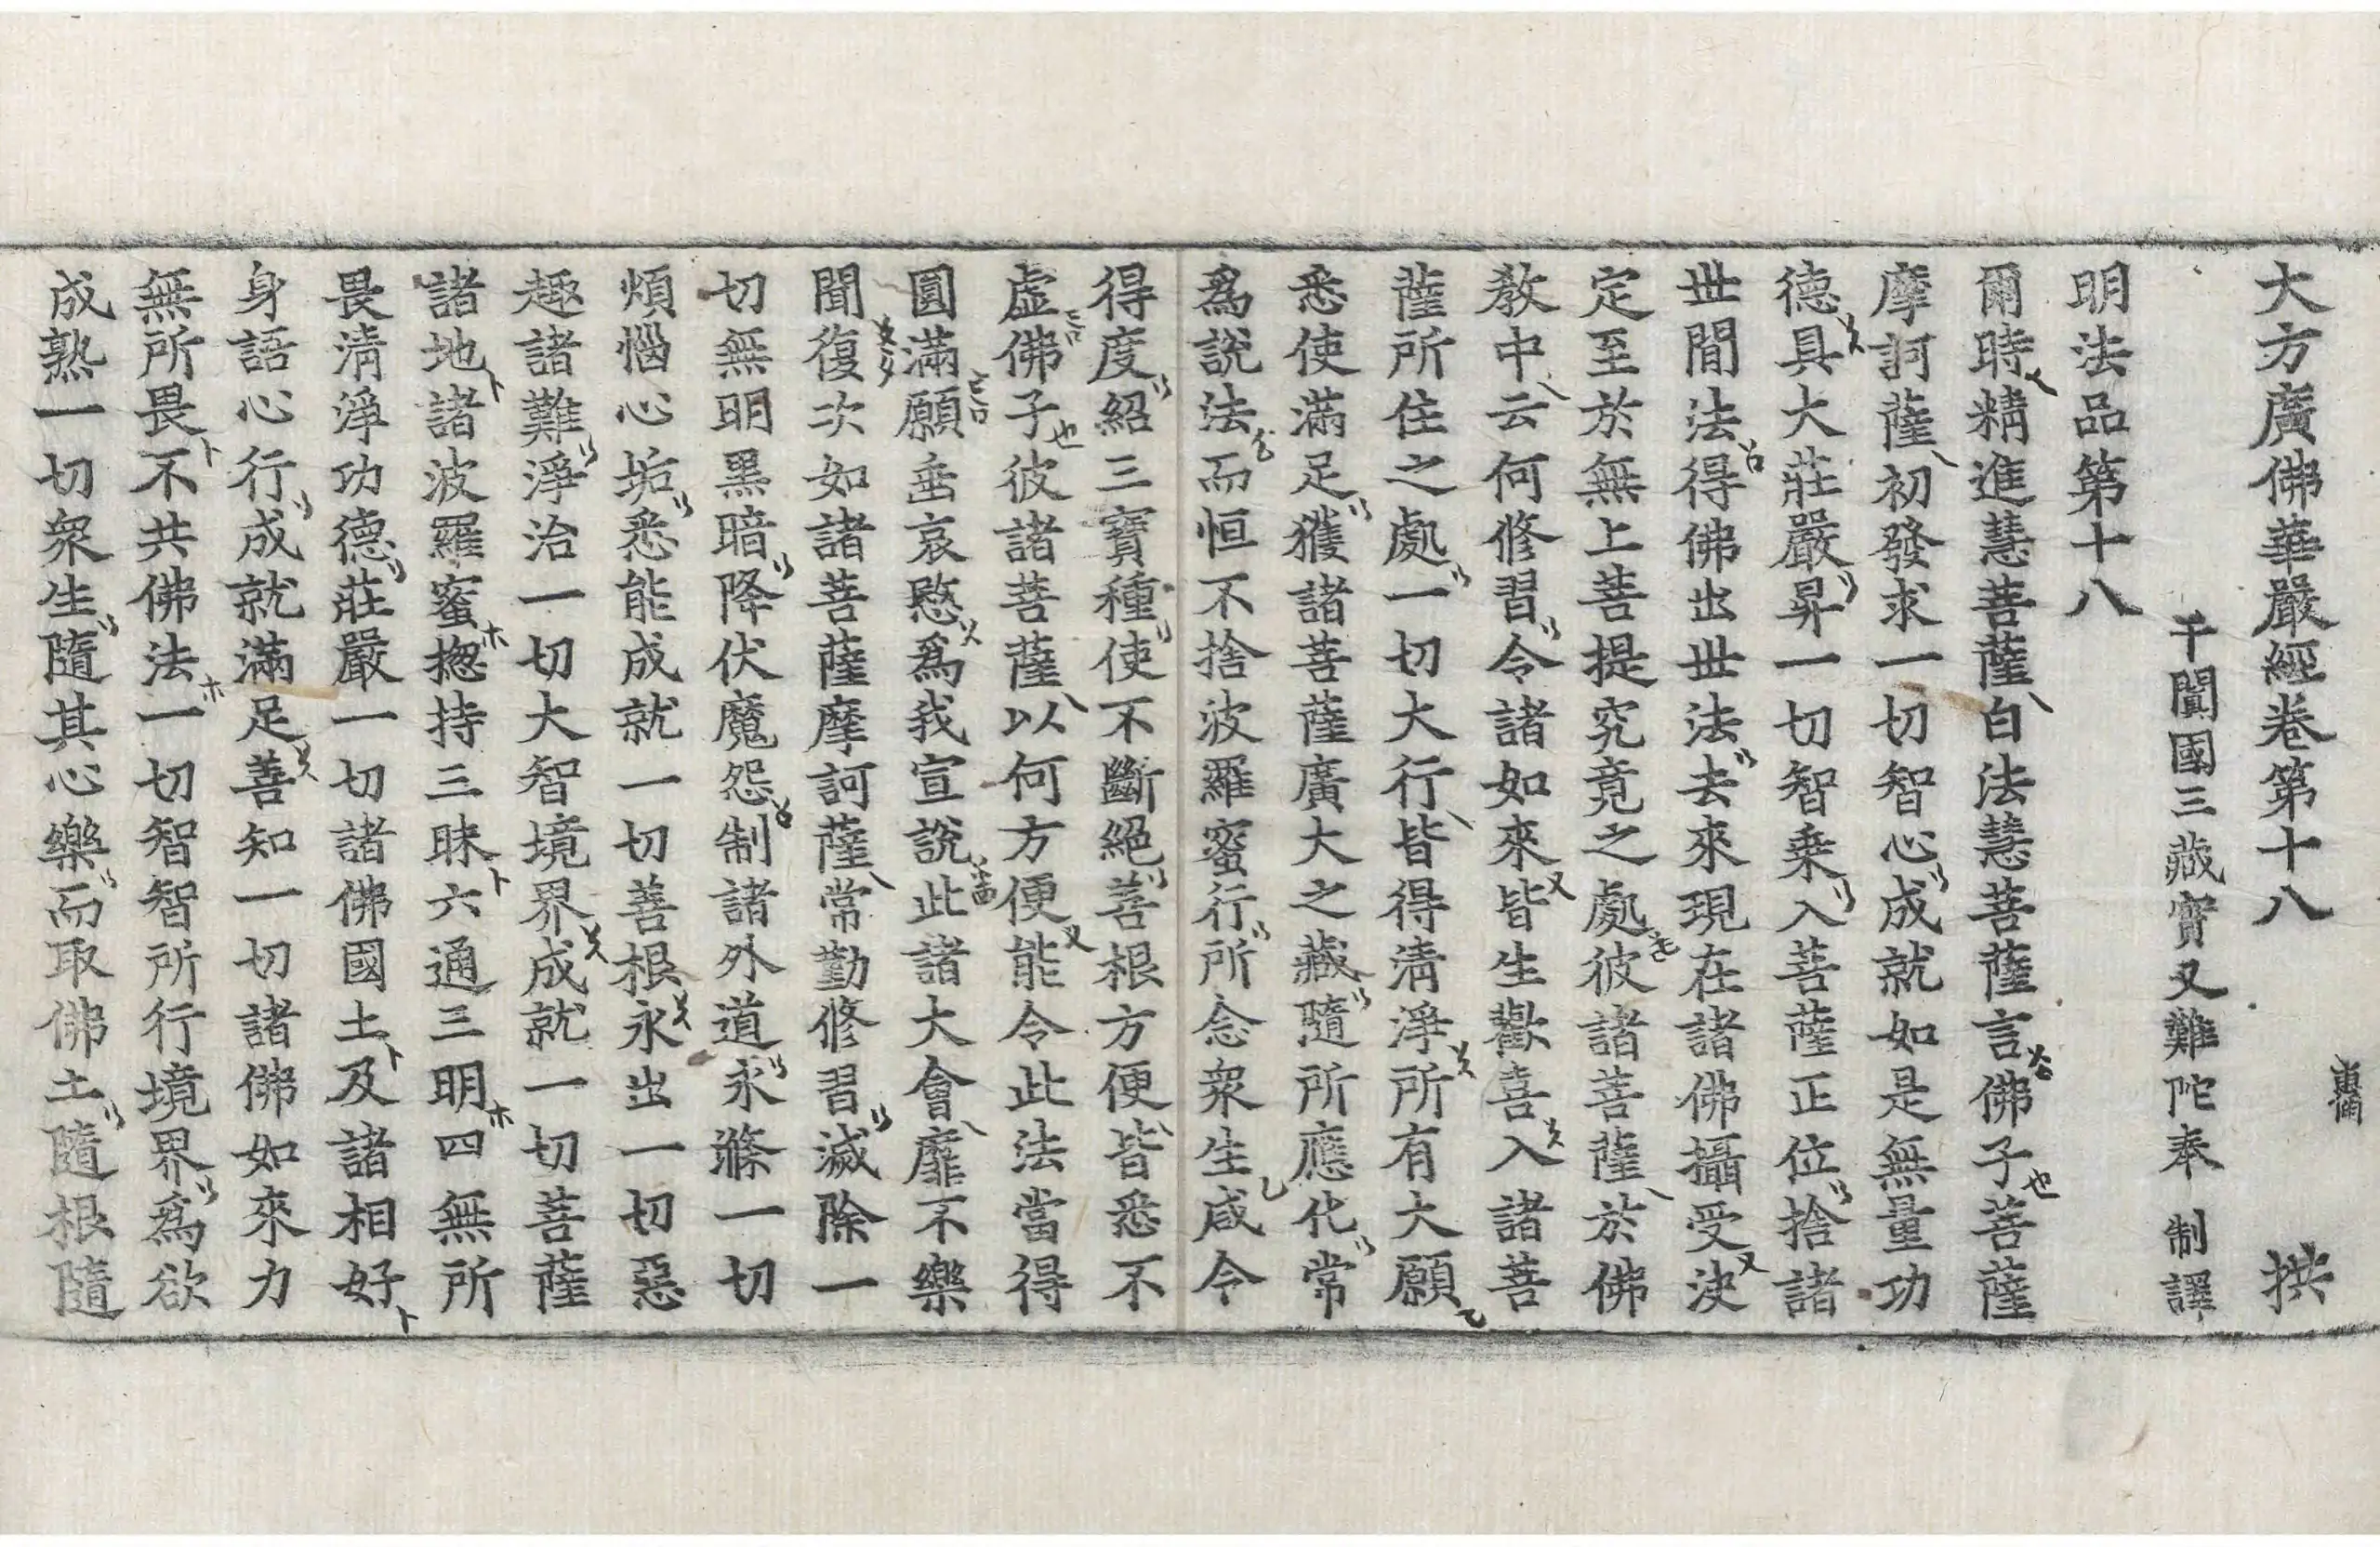 大方廣佛華嚴經卷第十八 拱
于闐國三藏實叉難陀奉 制譯
明法品第十八
爾時精進慧菩薩白法慧菩薩言佛子菩薩
摩訶薩初發求一切智心成就如是無量功
德具大莊嚴昇一切智乘入菩薩正位捨諸
世間法得佛出世法去來現在諸佛攝受決
定至於無上菩提究竟之處彼諸菩薩於佛
教中云何修習令諸如來皆生歡喜入諸菩
薩所住之處一切大行皆得清淨所有大願
悉使滿足獲諸菩薩廣大之藏隨所應化常
爲說法而恒不捨波羅蜜行所念衆生咸令
得度紹三寶種使不斷絕善根方便皆悉不
虛佛子彼諸菩薩以何方便能令此法當得
圓滿願垂哀愍爲我宣說此諸大會靡不樂
聞復次如諸菩薩摩訶薩常勤修習滅除一
切無明黑暗降伏魔怨制諸外道永滌一切
煩惱心垢悉能成就一切善根永出一切惡
趣諸難淨治一切大智境界成就一切菩薩
諸地諸波羅蜜揔持三昧六通三明四無所
畏淸淨功德莊嚴一切諸佛國土及諸相好
身語心行成就滿足善知一切諸佛如來力
無所畏不共佛法一切智智所行境界爲欲
成熟一切衆生隨其心樂而取佛土隨根隨